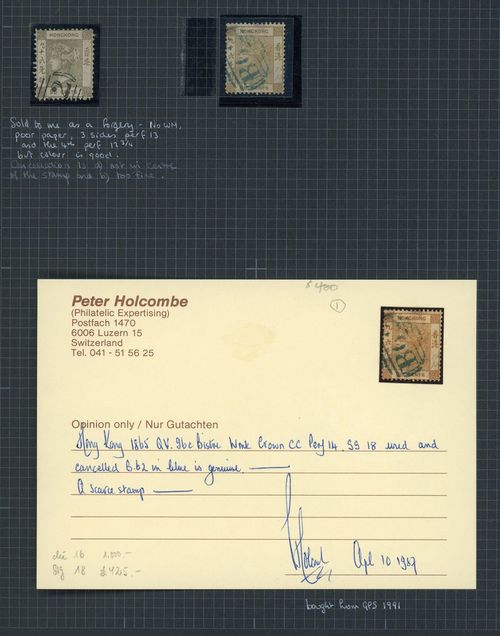 HONGKONG
HONGKONG
B62
Sold to me as a forgery - No WM,
poor paper, 3 sides perf 13
and the 4th perf 12 3/4
but colour is good.
Cancellation is a) not in centre
of the stamp and b) too fine.
$400
1
Peter Holcombe
(Philatelic Expertising)
Postfach 1470
6006 Luzern 15
Switzerland
Tel. 041 - 51 56 25
HONGKONG
B62
Opinion only / Nur Gutachten
Hong Kong 1865 QV. 96c Bistre Wmk Crown CC Perf 14. SG 18 used and
cancelled B.62 in blue is genuine.
A scarce stamp
April 10 1987
16 1,000.-
18 £425.-
bought from GPS 1991